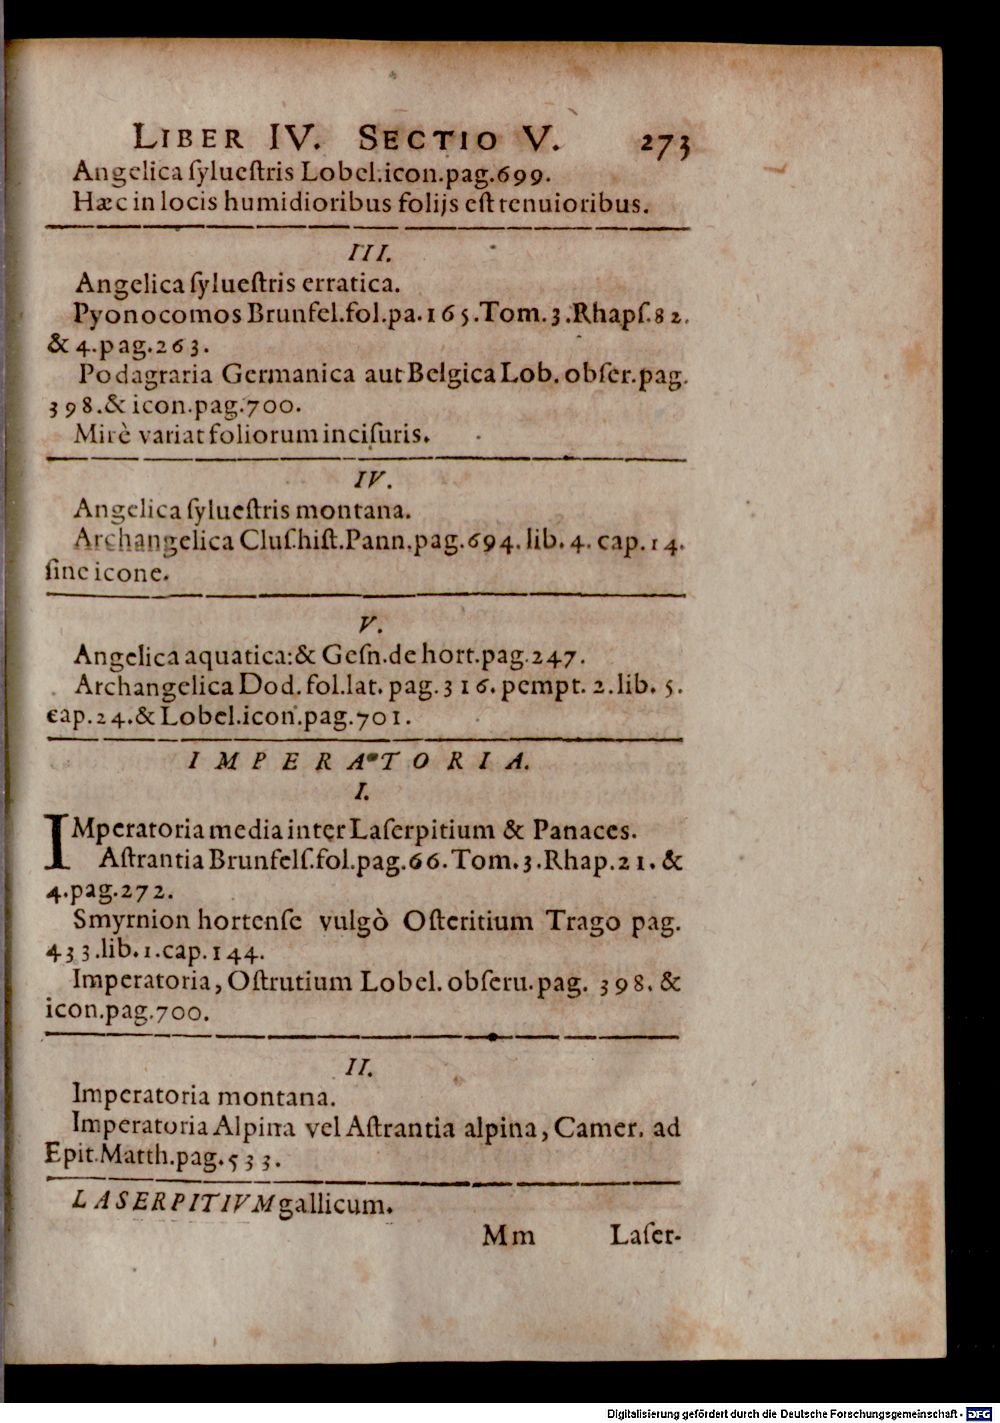 LIBER IV. SECTIO V. 273
Angelica ſylueſtris Lobel.icon.pag.699.
Hæc in locis humidioribus folijs eſt tenuioribus.
III.
Angelica ſylueſtris erratica.
Pyonocomos Brunfel.fol.pa.165.Tom.3.Rhapſ.82.
& 4.pag.263.
Podagraria Germanica aut Belgica Lob. obſer.pag.
398.& icon.pag.700.
Mirè variat foliorum inciſuris.
IV.
Angelica ſylueſtris montana.
Archangelica Cluſ.hiſt.Pann.pag.694.lib.4. cap.14.
ſine icone.
V.
Angelica aquatica:& Geſn.de hort.pag.247.
Archangelica Dod. fol.lat. pag.316. pempt. 2.lib. 5.
cap.24.& Lobel.icon.pag.701.
IMPERATORIA.
I.
IMperatoria media inter Laſerpitium & Panaces.
Aſtrantia Brunfelſ.fol.pag.66.Tom.3.Rhap.21. &
4.pag.272.
Smyrnion hortenſe vulgò Oſteritium Trago pag.
433.lib.1.cap.144.
Imperatoria, Oſtrutium Lobel. obſeru.pag. 398. &
icon.pag.700.
II.
Imperatoria montana.
Imperatoria Alpina vel Aſtrantia alpina, Camer. ad
Epit.Matth.pag.533.
LASERPITIVM gallicum.
Mm Laſer-
Digitalisierung gefördert durch die Deutsche Forschungsgemeinschaft - DFG